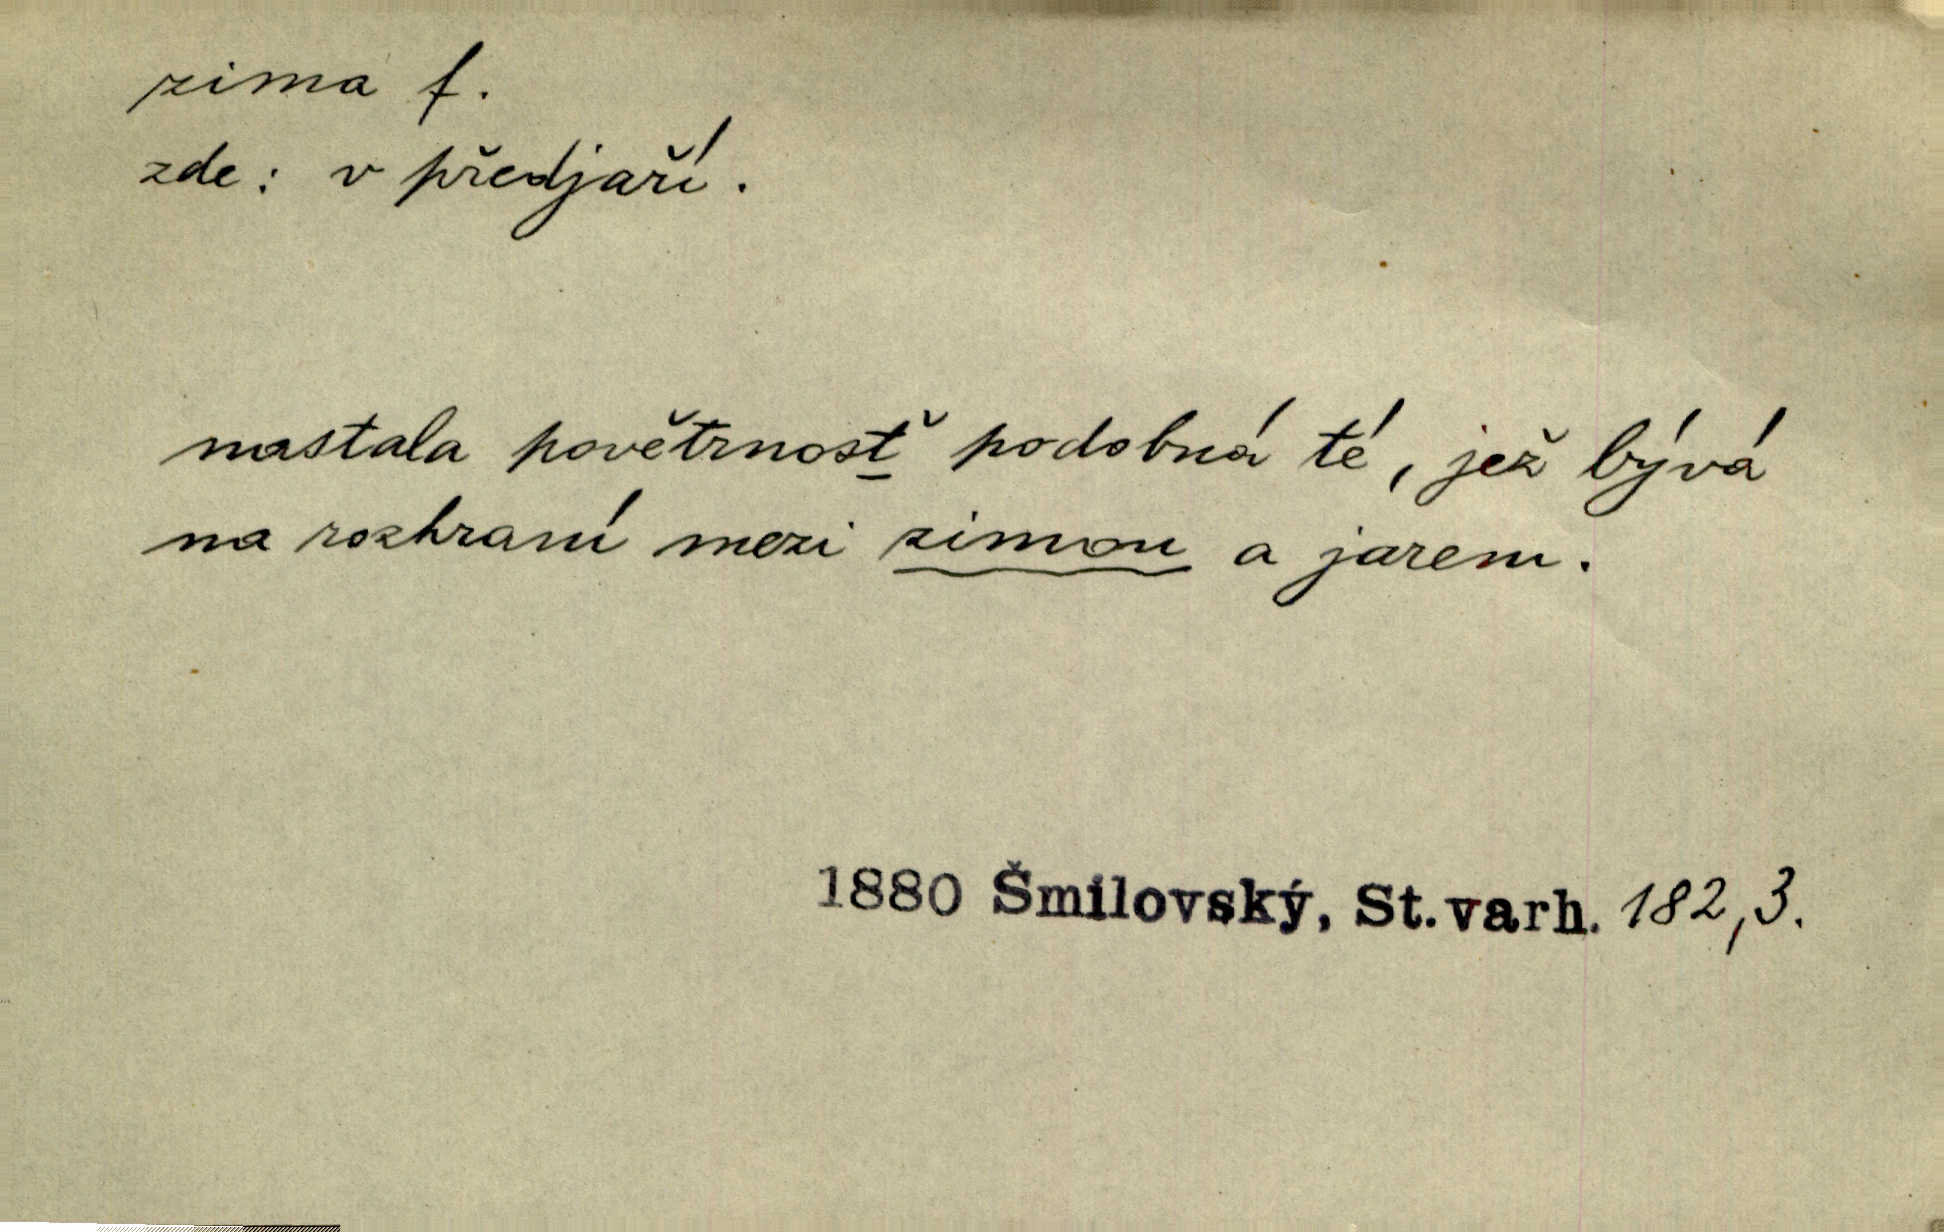 zima f.
zde: v předjaří.
nastala povětrnosť podobná té, jež bývá
na rozhraní mezi zimou a jarem.
1880 Šmilovský, St. varh. 182,3.